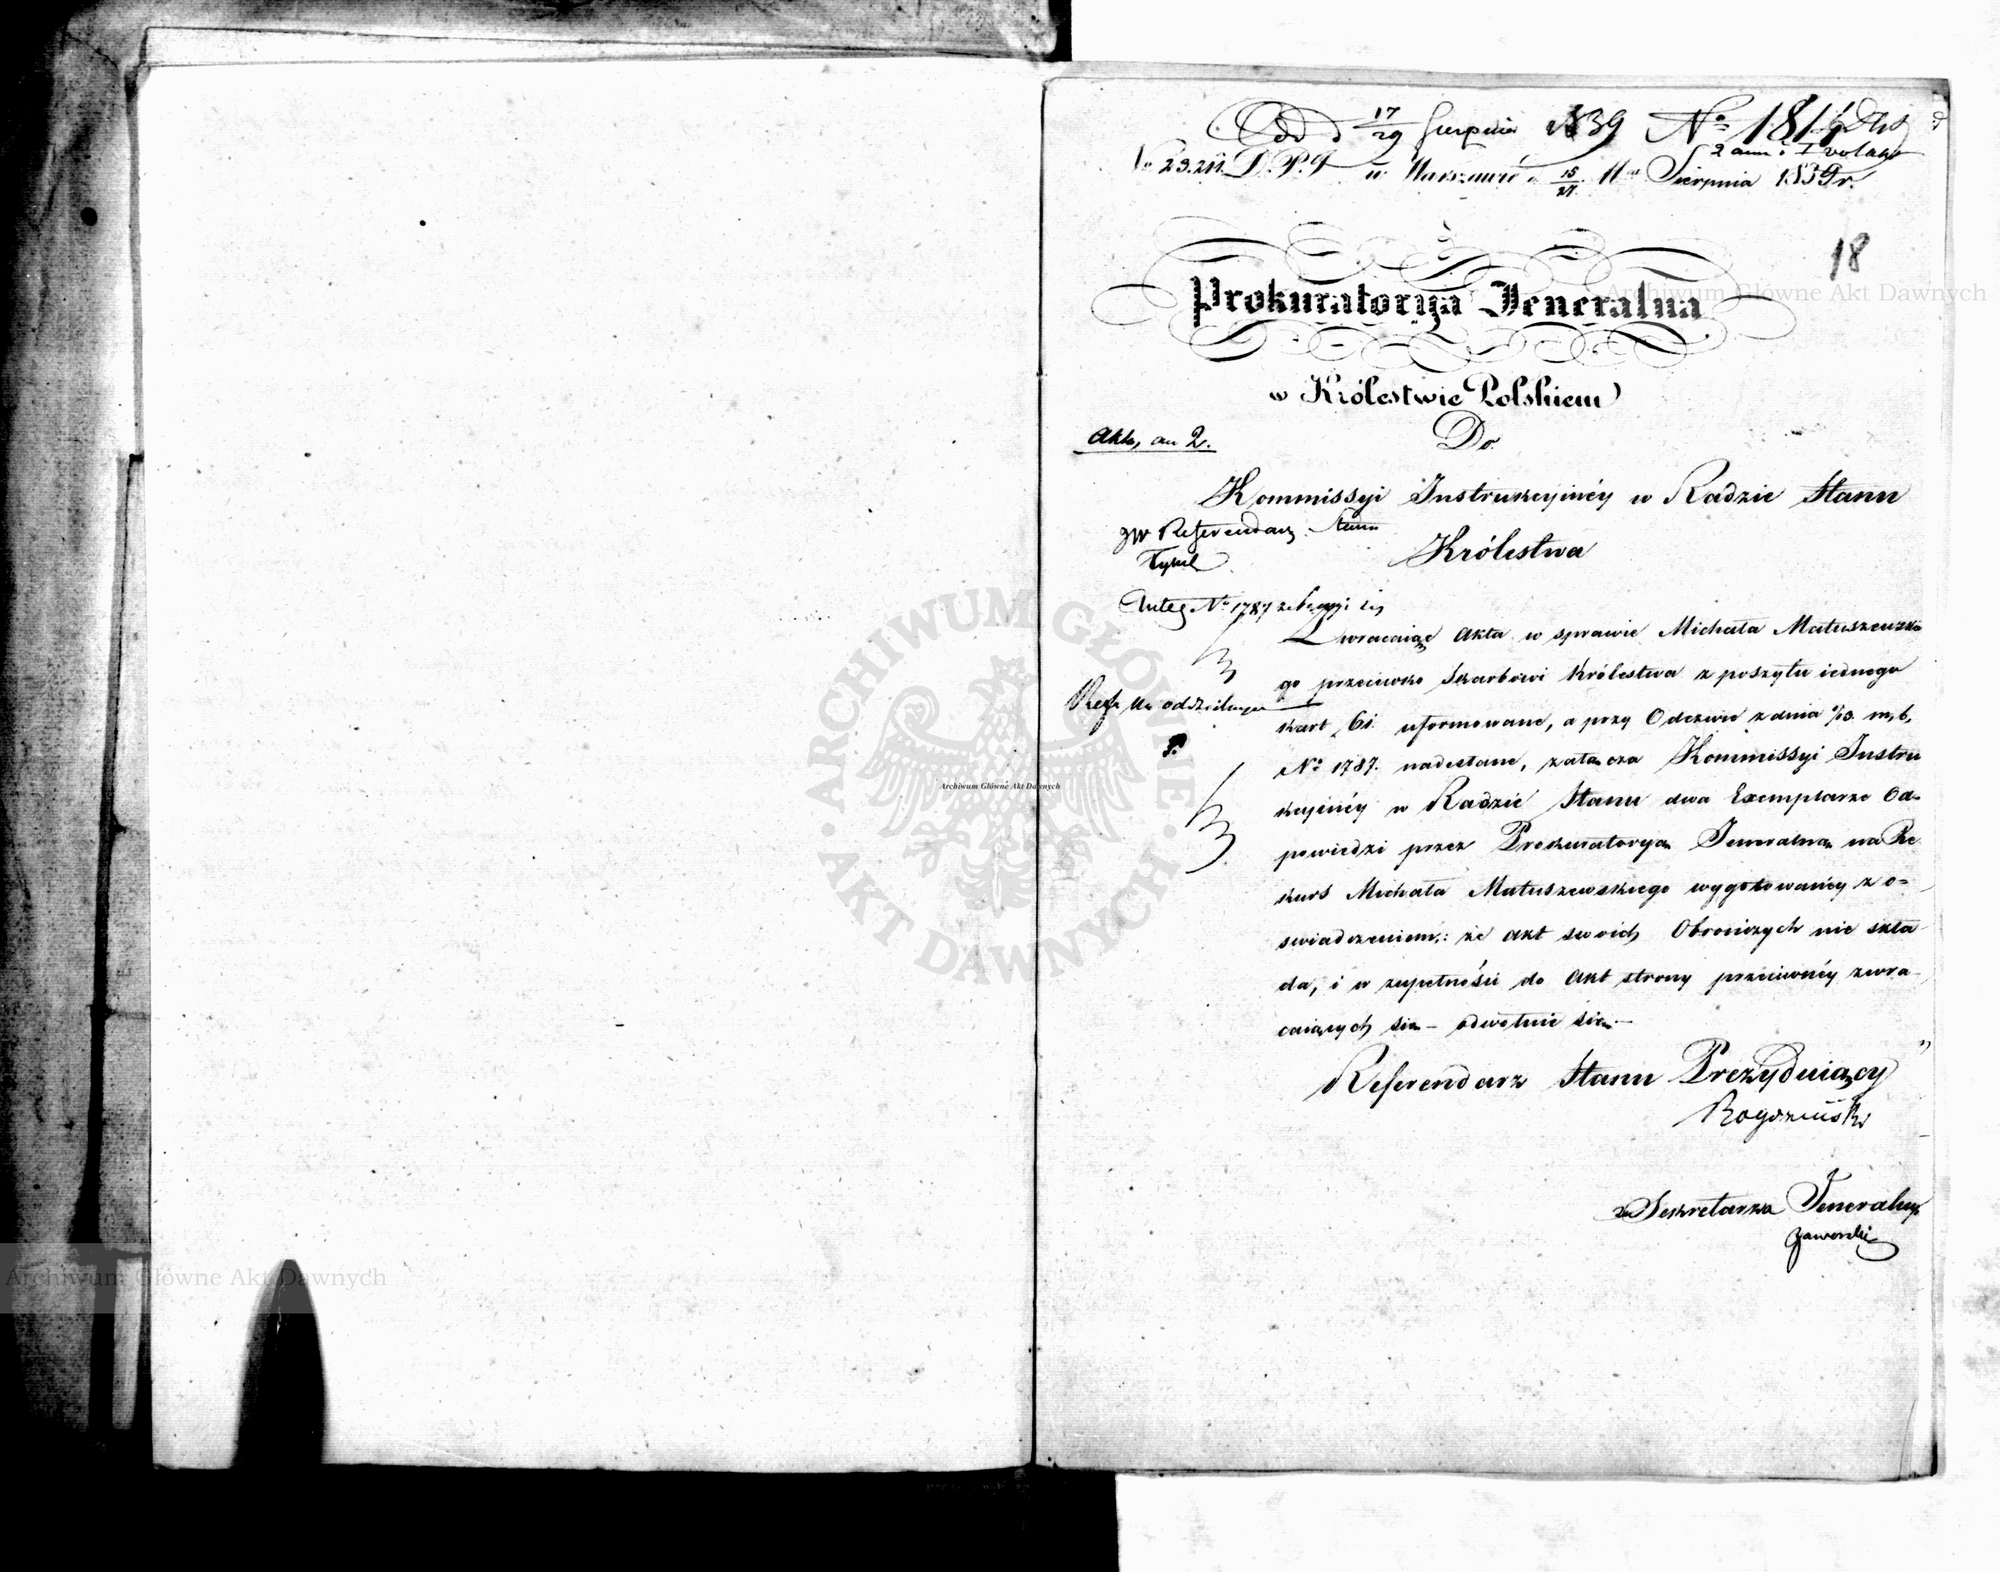 Odd d 17/29 Sierpnia 1839 No 1814
2 ann: i 1 volum
No 23.211. D.P.J w Warszawie d. 15/27 Mca Sierpnia 1839 r.
18
Prokuratorya Jeneralna
w Królestwie Polskiem
Akta, an 2.
Do
Kommissyi Instrukcyinéy w Radzie Stanu
Królestwa
JW Referendarz Stanu
No 1787
Zwracaiąc Akta w sprawie Michała Matuszewskie
go przeciwko Skarbowi Królestwa z poszytu iednego
kart 61. uformowane, a przy Odezwie z dnia 1/13. m, b,
No 1787. nadesłane, załącza Kommissyi Instru
kcyinéy w Radzie Stanu dwa Exemplarze Od=
powiedzi przez Prokuratoryą Jeneralną na Re
kurs Michała Matuszewskiego wygotowanéy z o=
świadczeniem: że akt swoich Obrończych nie skła
da, i w zupełności do Akt strony przeciwnéy zwra
caiących się – odwołuie się. –
Referendarz Stanu Prezyduiący
Rogoziński
za Sekretarza Jeneralnego
Jaworski
ARCHIWUM GŁÓWNE AKT DAWNYCH
Archiwum Główne Akt Dawnych
Archiwum Główne Akt Dawnych
Archiwum Główne Akt Dawnych